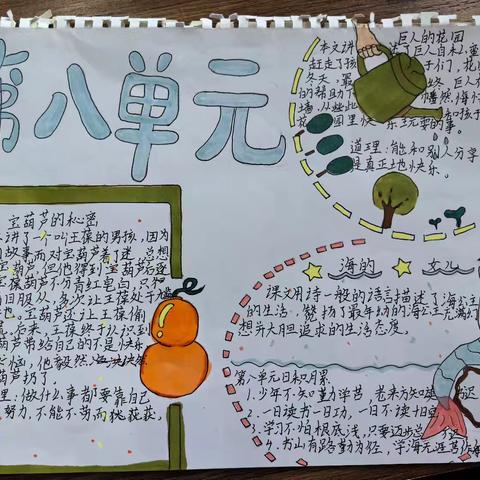 第八单元
巨人的花园
本文讲述了巨人自私小
赶走了孩子们，花
冬天，
的帮助下
墙，从此
花园里快乐玩耍的事。
道理：能和别人分享
是真正地快乐。
宝葫芦的秘密
讲了一个叫王葆的男孩，因为
故事而对宝葫芦着了迷，总想
宝葫芦，但他得到宝葫芦后逐
宝葫芦不分青红皂白，只知
旧服从，多次让王葆处于尴
宝葫芦还让王葆偷
后来，王葆终于认识到
葫芦带给自己的不是快乐
烦恼，他毅然决然
葫芦扔了。
做什么事都要靠自己
努力，不能不劳而获。
海的女儿
课文用诗一般的语言描述了海公主
的生活，赞扬了最年幼的海公主充满幻
想并大胆追求的生活态度。
第八单元日积月累
1.少年不知勤学苦，老来方知读书迟
2.一日读书一日功，一日不读十日空
3.学习不怕根底浅，只要迈步总不迟
4.书山有路勤为径，学海无涯苦作